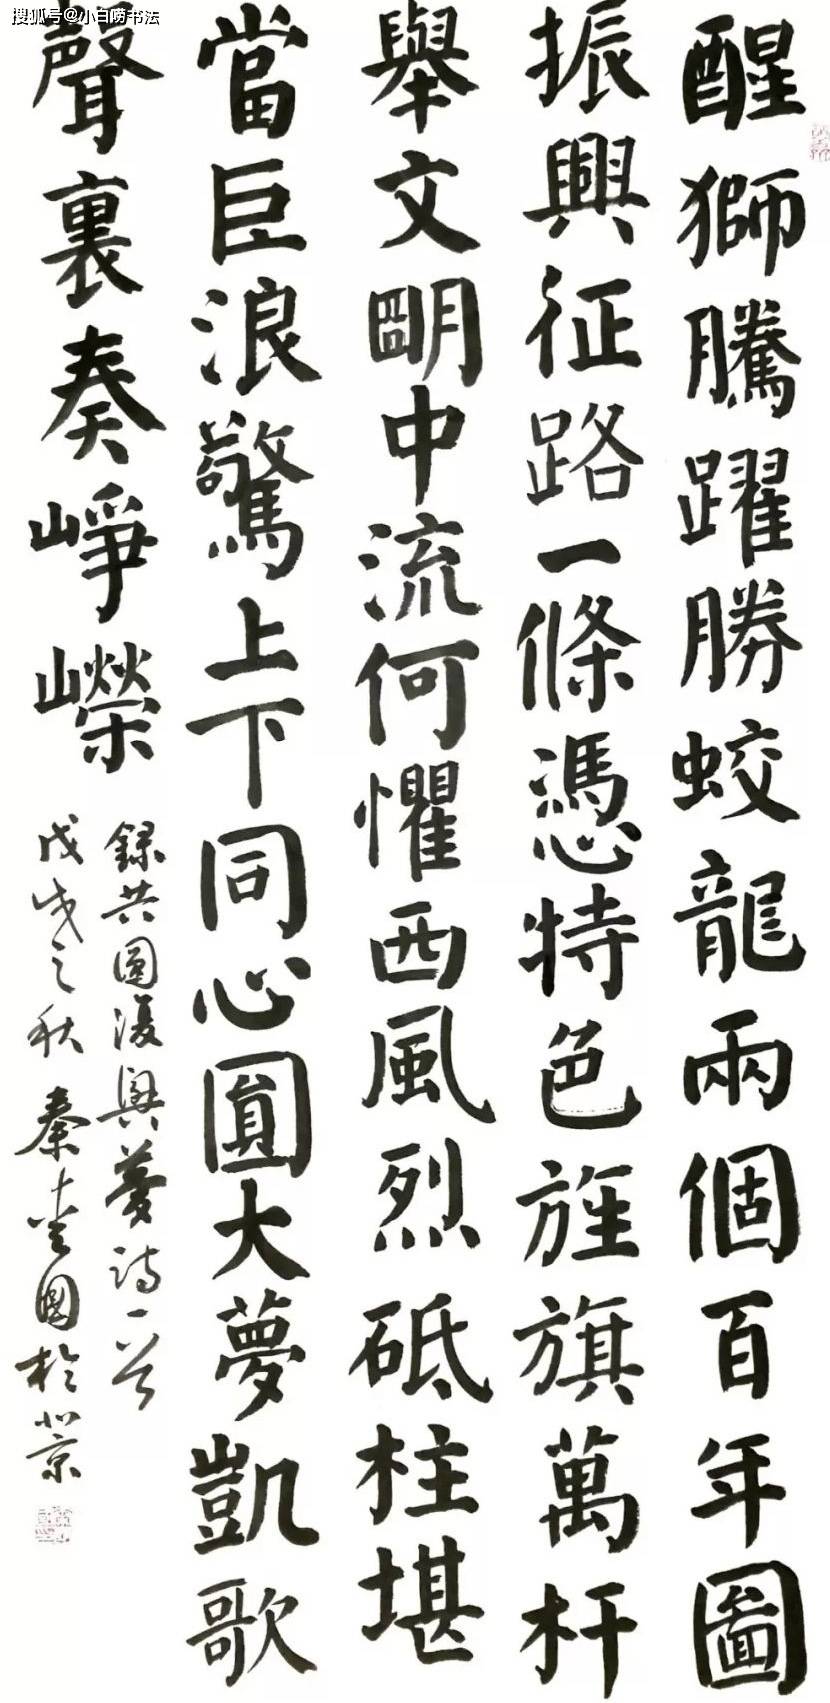 搜狐号@小白唠书法
醒獅騰躍勝蛟龍兩個百年圖
振興征路一條憑特色旌旗萬杆
舉文明中流何懼西風烈砥柱堪
當巨浪驚上下同心圓大夢凱歌
聲裏奏崢嶸
錄共圓復興夢詩一首
戊戌之秋 秦愛國於北京